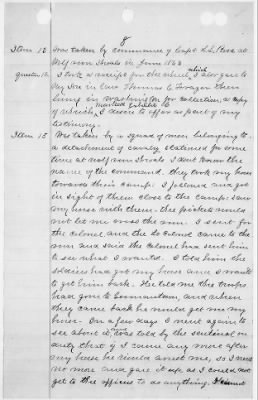 8
Item 12 Was taken by command of Capt
at Wolf run Shoals in June 1863
Question I took a receipt for the which I also gave to
my in law Thomas E.
living in Washington for collection, a copy
of which, marked Exhibit I desire to offer as part of my
testimony.
Item 13 Was taken by a squad of men belonging to
a detachment of cavalry stationed for some
time at wolf run Shoals I dont know the
name of the command, they took my horse
towards their camp. I followed and got
in sight of them close to the camp: saw
my horse with them. The pickets would
not let me pass the run. I sent for
the Colonel and the Lt Colonel came to the
run and said the Colonel had sent him
to see what I wanted. I told him the
soldiers had got my horse and I wanted
to get him back. He told me the troops
had gone to and when
they came back he would get me my
horse. In a few days I went again to
see about it, and was told by the sentinel on
duty that if I came any more after
my horse he would arrest me, so I went
no more and gave it up as I could not
get to the officers to do anything.